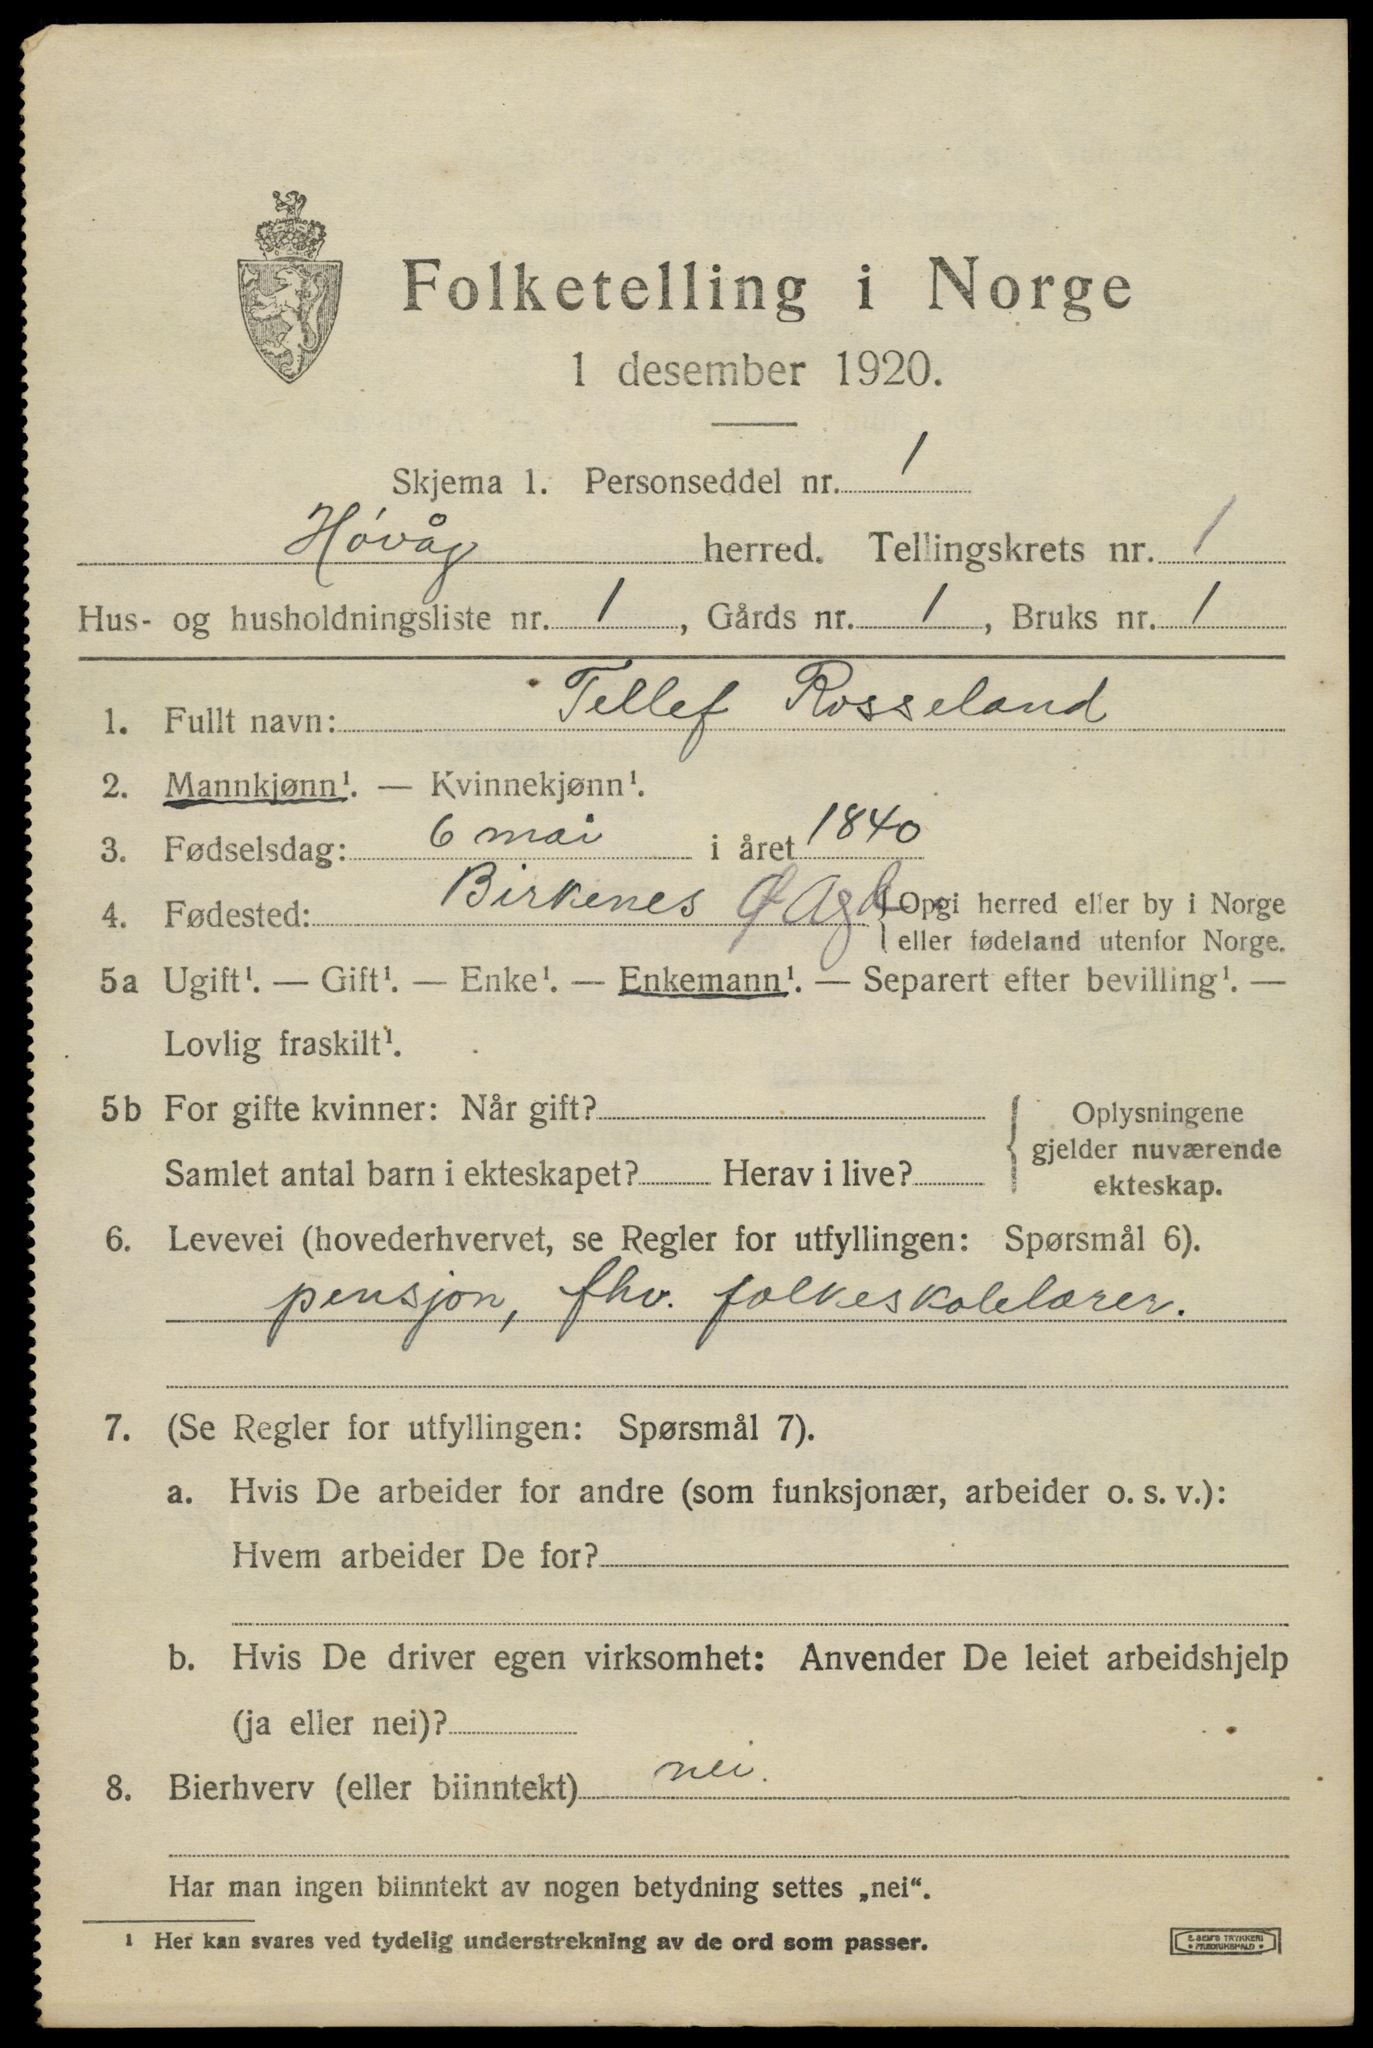 Folketelling i Norge
1 desember 1920.
Skjema 1. Personseddel nr. 1
Høvåg herred. Tellingskrets nr. 1
Hus- og husholdningsliste nr. 1, Gårds nr. 1, Bruks nr. 1
1. Fullt navn: Tellef Rosseland
2. Mannkjønn¹. — Kvinnekjønn¹.
3. Fødselsdag: 6 mai i året 1840
4. Fødested: Birkenes Ø Agd. {Opgi herred eller by i Norge
eller fødeland utenfor Norge.
5a Ugift¹. — Gift¹. — Enke¹. — Enkemann¹. — Separert efter bevilling¹. —
Lovlig fraskilt¹.
5b For gifte kvinner: Når gift?
Samlet antal barn i ekteskapet? Herav i live?
{Oplysningene
gjelder nuværende
ekteskap.
6. Levevei (hovederhvervet, se Regler for utfyllingen: Spørsmål 6).
pensjon, fhv. folkeskolelærer.
7. (Se Regler for utfyllingen: Spørsmål 7).
a. Hvis De arbeider for andre (som funksjonær, arbeider o. s. v.):
Hvem arbeider De for?
b. Hvis De driver egen virksomhet: Anvender De leiet arbeidshjelp
(ja eller nei)?
8. Bierhverv (eller biinntekt) nei.
Har man ingen biinntekt av nogen betydning settes „nei“.
¹ Her kan svares ved tydelig understrekning av de ord som passer.
E. SEM'S TRYKKERI
• FREDRIKSHALD •